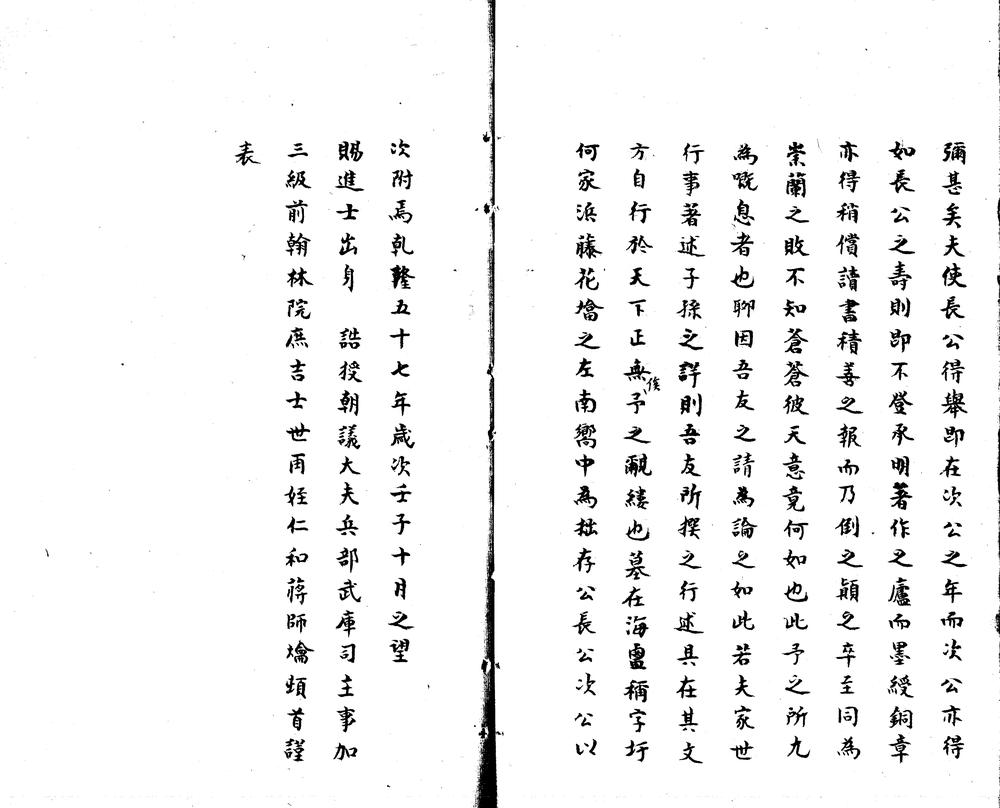 彌甚矣夫使長公得舉即在次公之年而次公亦得
如長公之壽則即不登承明著作之廬而墨綬銅章
亦得稍償讀書積善之報而乃倒之顛之卒至同為
崇蘭之敗不知蒼蒼彼天意竟何如也此予之所九
為嘅息者也聊因吾友之請為論之如此若夫家世
行事著述子孫之詳則吾友所撰之行述具在其文
方自行於天下正無俟予之覶縷也墓在海鹽稱字圩
何家浜藤花壋之左南嚮中為拙存公長公次公以
次附焉乹隆五十七年歲次壬子十月之望
賜進士出身 誥授朝議大夫兵部武庫司主事加
三級前翰林院庶吉士世再姪仁和蔣師爚頓首謹
表